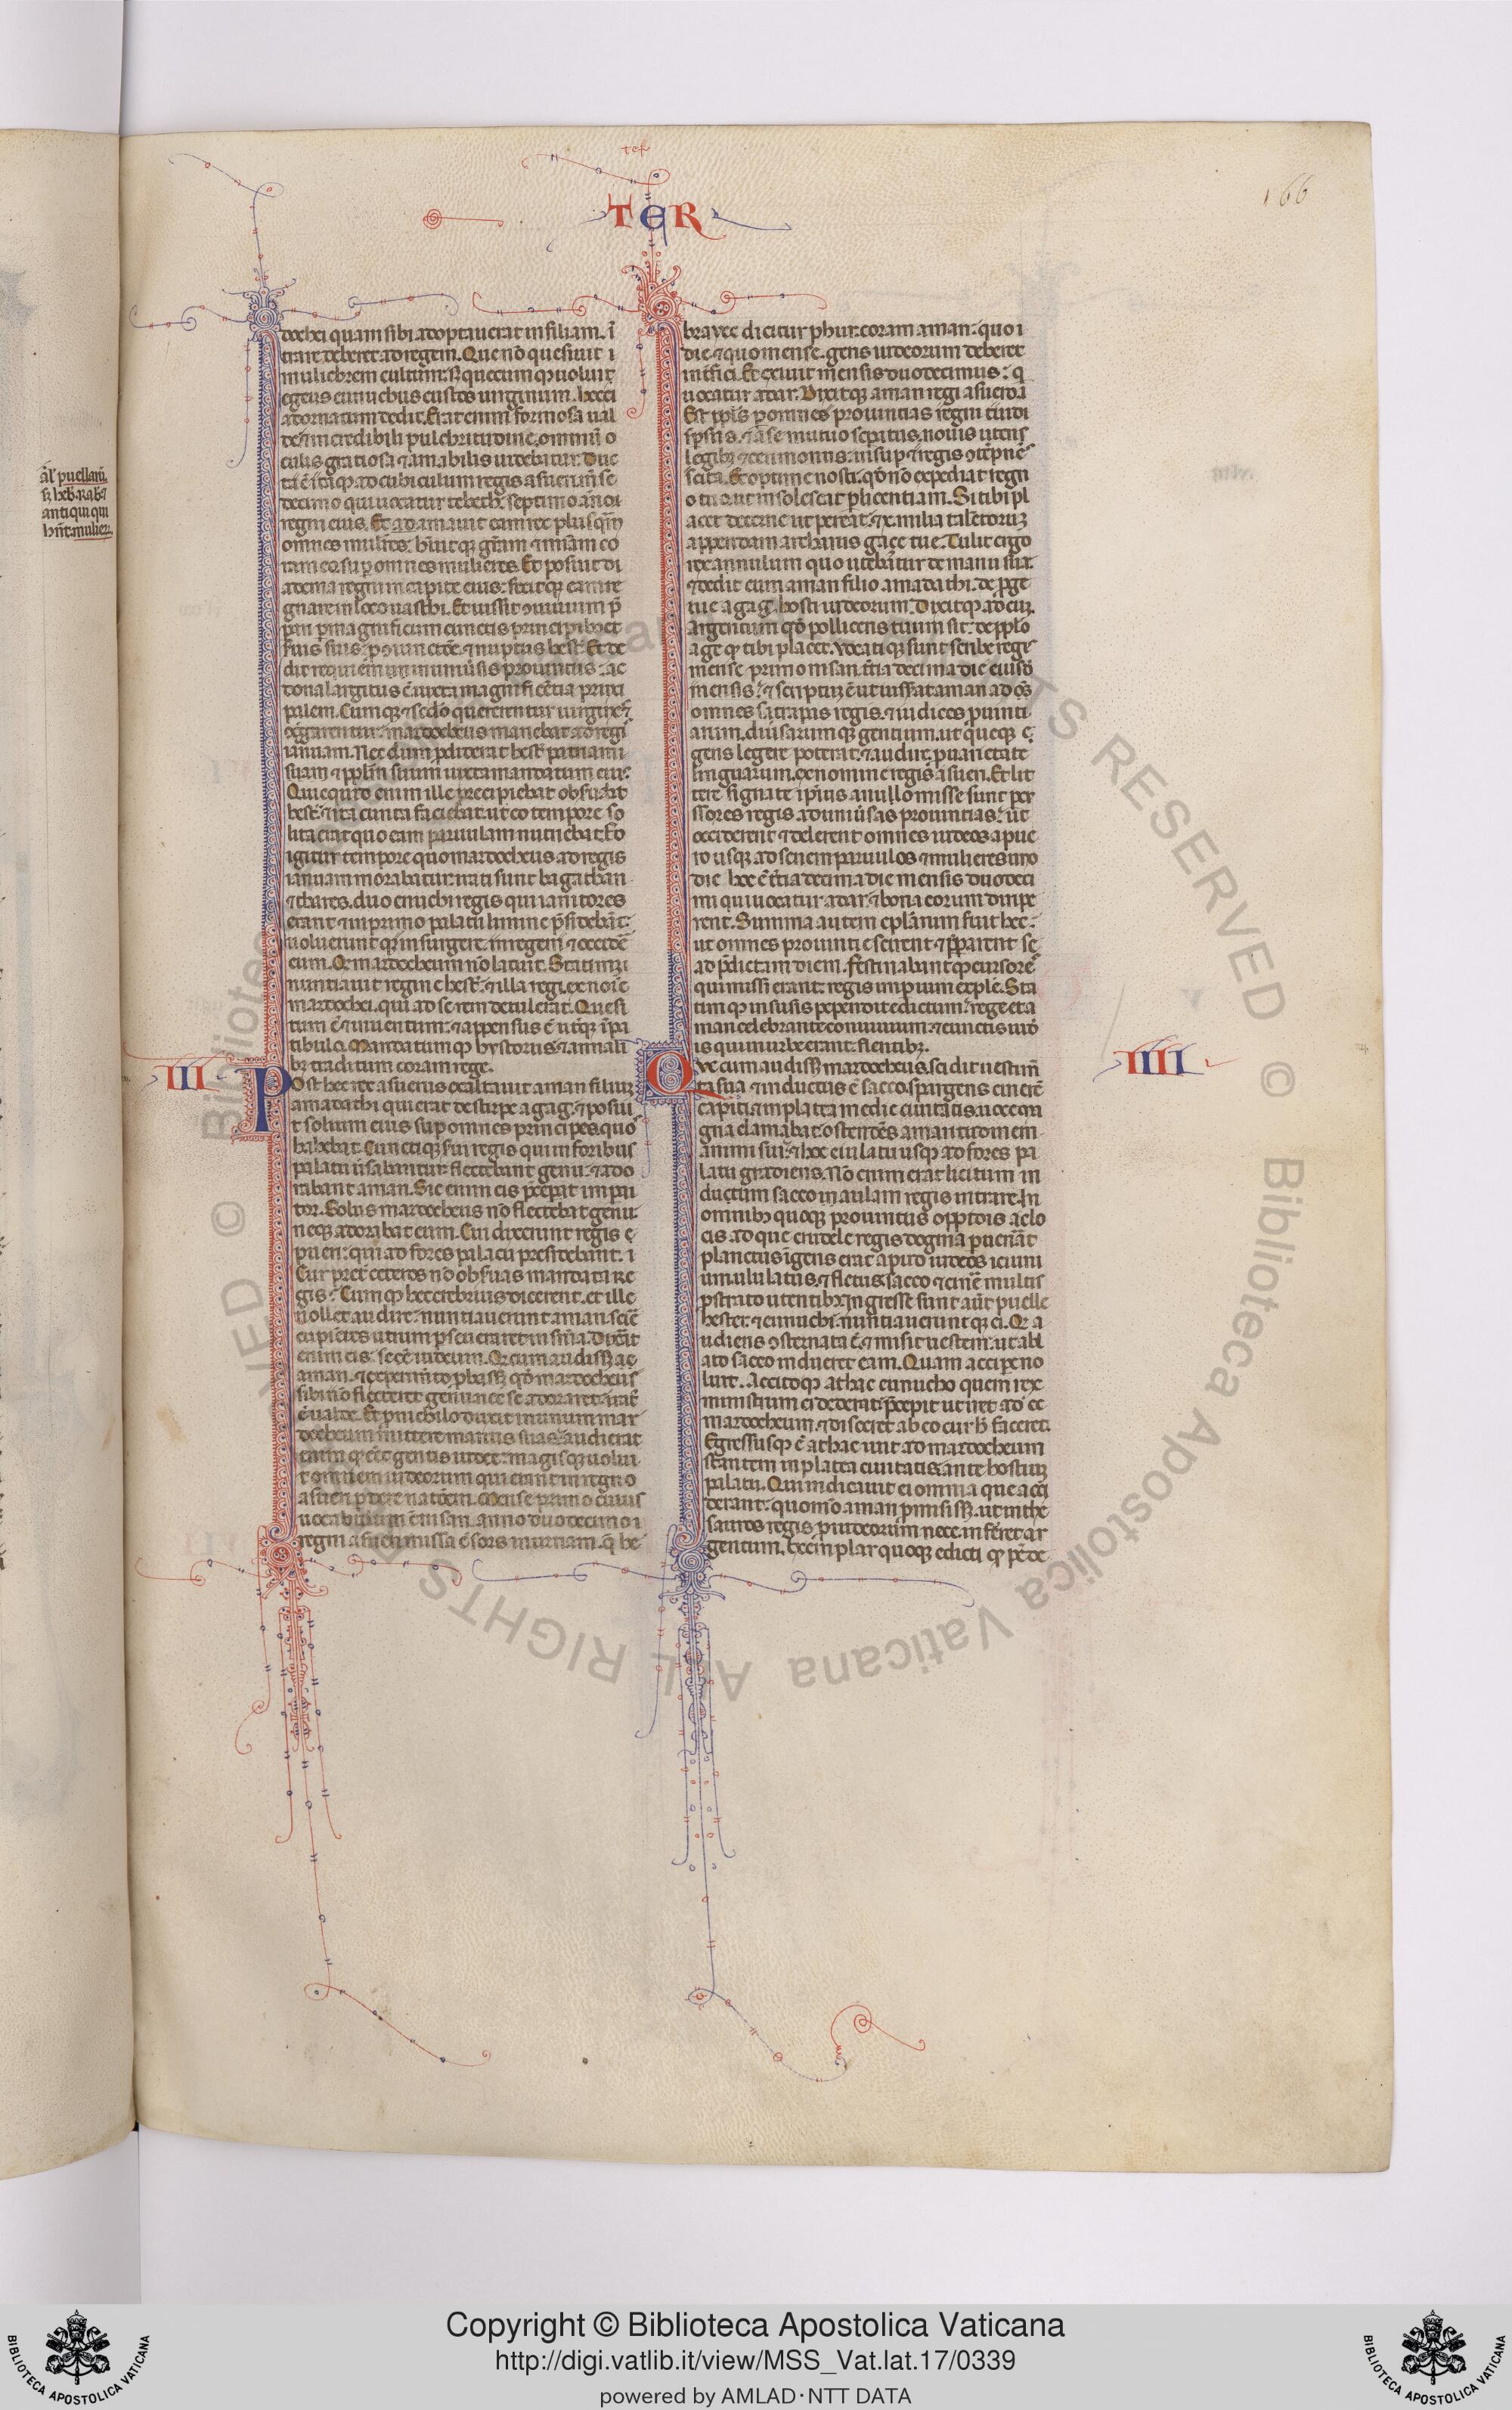 ter
TER
166
al' puellam
antiqui qui
hn̄t mulier.
dochei quam sibi adoptauerat in filiam. i
trare deberet ad regem. Que nō quesiuit
muliebrem cultum: sꝫ quecumqꝫ uoluit
egeus eunuchus custos uirginum. hec ei
ad ornatum dedit. Erat enim formosa ual
de ⁊ incredibili pulchritudine. omniū o
culis gratiosa ⁊ amabilis uidebatur. Duc
ta ē itaqꝫ ad cubiculum regis asueri mēse
decimo qui uocatur tebeth. septimo anno
regni eius. Et adamauit eam rex plusqm̄
omnes mulieres. habuitqꝫ gr̄am ⁊ mīam co
ram eo sup omnes mulieres. Et posuit di
adema regni in capite eius: fecitqꝫ eam re
gnare in loco uasthi. Et iussit ꝯuiuium p̄
pari p̱magnificum cunctis principibꝫ et
seruis suis: ꝓ ꝯiunctiōe ⁊ nuptiis hester. Et de
dit requiem uniuersis prouinciis: ac
dona largitus ē iuxta magnificētiā princi
palem. Cumqꝫ ⁊ sc̄do quererentur uirgines
ꝯgregarentur: mardocheus manebat ad regis
ianuam. Nec dum prodiderat hester patriam
suam ⁊ pplm̄ suum iuxta mandatum eius.
Quicquid enim ille precipiebat obseruabat
hester: ⁊ ita cuncta faciebat: ut eo tempore so
lita erat quo eam paruulam nutriebat. Eo
igitur tempore quo mardocheus ad regis
ianuam morabatur: irati sunt bagathan
⁊ thares. duo eunuchi regis qui ianitores
erant ⁊ in primo palatii limine p̄sidebāt:
uoluerunt qꝫ insurgere in regem ⁊ occidē
eum. Qꝫ mardocheum nō latuit. Statimqꝫ
nuntiauit regine hester: ⁊ illa regi. ex noīe
mardochei. qui ad se rem detulerat. Quesi
tum ē ⁊ inuentum: ⁊ appensus ē uterqꝫ ī pa
tibulo. Mandatumqꝫ hystoriis ⁊ annali
bꝫ traditum coram rege.
III
Post hec rex asuerus exaltauit aman filium
amadathi qui erat de stirpe agag: ⁊ posui
t solium eius sup omnes principes. quos
habebat. Cunctiqꝫ serui regis qui in foribus
palatii uersabantur: flectebant genu: ⁊ ado
rabant aman. Sic enim eis p̄ceperat impera
tor. Solus mardocheus nō flectebat genu:
neqꝫ adorabat eum. Cui dixerunt regis
pueri: qui ad fores palacii presidebant.
Cur preter ceteros nō obseruas mandata re
gis? Cumqꝫ hec crebrius dicerent. et ille
nollet audire: nuntiauerunt aman. scire
cupientes utrum perseueraret in sententia. Dixerat
enim eis: se esse iudeum. Qꝫ cum audisset
aman. ⁊ experimento probasset qd̄ mardocheus
sibi nō flecteret genu nec se adoraret: irat̄
ē ualde. Et pro nichilo duxit in unum mar
docheum mittere manus suas: audierat
enim qꝫ esset gentis iudee: magisqꝫ uolui
t omnem iudeorum qui erant in regno
asueri perdere nationem. Mense primo cuius
uocabulum ē nisan. anno duodecimo
regni asueri: missa ē sors in urnam. q̄ he
braice dicitur phur: coram aman: quo
die ⁊ quo mense. gens iudeorum deberet
interfici. Et exiuit mensis duodecimus: q
uocatur adar. Dixitqꝫ aman regi asuero:
Est ppl̄s p̱ omnes prouincias regni tui di
spersus. ⁊ a se mutuo sep̱atus. nouis utens
legibꝫ ⁊ cerimoniis: insuꝑ ⁊ regis ꝯtēpnens
scita. Et optime nosti. qd̄ nō expediat regn
o tuo ut insolescat p̱ licentiam. Si tibi pl
acet decerne ut pereat: ⁊ x. milia talentorum
appendam archariis gaze tue. Tulit ergo
rex annulum quo utebatur de manu sua:
⁊ dedit eum aman filio amadathi. de p̱ge
nie agag: hosti iudeorum. Dixitqꝫ ad eum.
Argentum qd̄ polliceris tuum sit: de pplo
age qd̄ tibi placet. Vocatiqꝫ sunt scribe regis
mense primo nisan. tertia decima die eiusdem
mensis: ⁊ scriptum ē ut iusserat aman ad
omnes satrapas regis. ⁊ iudices prouinci
arum. diuersarumqꝫ gentium. ut queqꝫ
gens legere poterat: ⁊ audire. p̱ uarietate
linguarum. ex nomine regis asueri. Et lit
tere signate ipsius anullo misse sunt per
cursores regis ad uniuersas prouincias: ut
occiderent ⁊ delerent omnes iudeos a pue
ro usqꝫ ad senem paruulos ⁊ mulieres uno
die hoc ē tertia decima die mensis duodeci
mi qui uocatur adar: ⁊ bona eorum diripe
rent. Summa autem eplarum fuit hec:
ut omnes prouincie scirent ⁊ p̄pararent se
ad p̄dictam diem. Festinabantqꝫ cursores
qui missi erant: regis imperium explere. Sta
timqꝫ in susis pependit edictum: rege et a
man celebrante conuiuium: ⁊ cunctis iude
is qui in urbe erant: flentibꝫ.
IIII
Que cum audisset mardocheus. scidit uestim̄
ta sua ⁊ indutus ē sacco. spargens cinerē
capiti: ⁊ in platea medie ciuitatis. uoce ma
gna clamabat. ostendens amaritudinem
animi sui: ⁊ hoc eiulatu usqꝫ ad fores pa
latii gradiens. Nō enim erat licitum in
dutum sacco in aulam regis intrare. In
omnibꝫ quoqꝫ prouinciis oppidis ac lo
cis ad que crudele regis dogma p̱uenerat
planctus īgens erat apud iudeos ieiuni
um ululatus. ⁊ fletus. sacco ⁊ cinere multis
p̱ strato utentibꝫ. Ingresse sunt aut̄ puelle
hester: ⁊ eunuchi: nuntiaueruntqꝫ ei. Qꝫ a
udiens ꝯsternata ē. ⁊ misit uestem: ut abl
ato sacco indueret eum. Quam accipere no
luit. Accitoqꝫ athac eunucho quem rex
ministrum ei dederat: p̄cepit ut iret ad
mardocheum. ⁊ disceret ab eo cur hoc faceret.
Egressusqꝫ ē athac iuit ad mardocheum
stantem in platea ciuitatis. ante hostium
palatii. Qui indicauit ei omnia que acci
derant: quomodo aman promisisset. ut in the
sauros regis p̱ iudeorum nece. inferret ar
gentum. Exemplar quoqꝫ edicti qꝫ pende
Copyright © Biblioteca Apostolica Vaticana
http://digi.vatlib.it/view/MSS_Vat.lat.17/0339
powered by AMLAD·NTT DATA
BIBLIOTECA APOSTOLICA VATICANA
BIBLIOTECA APOSTOLICA VATICANA